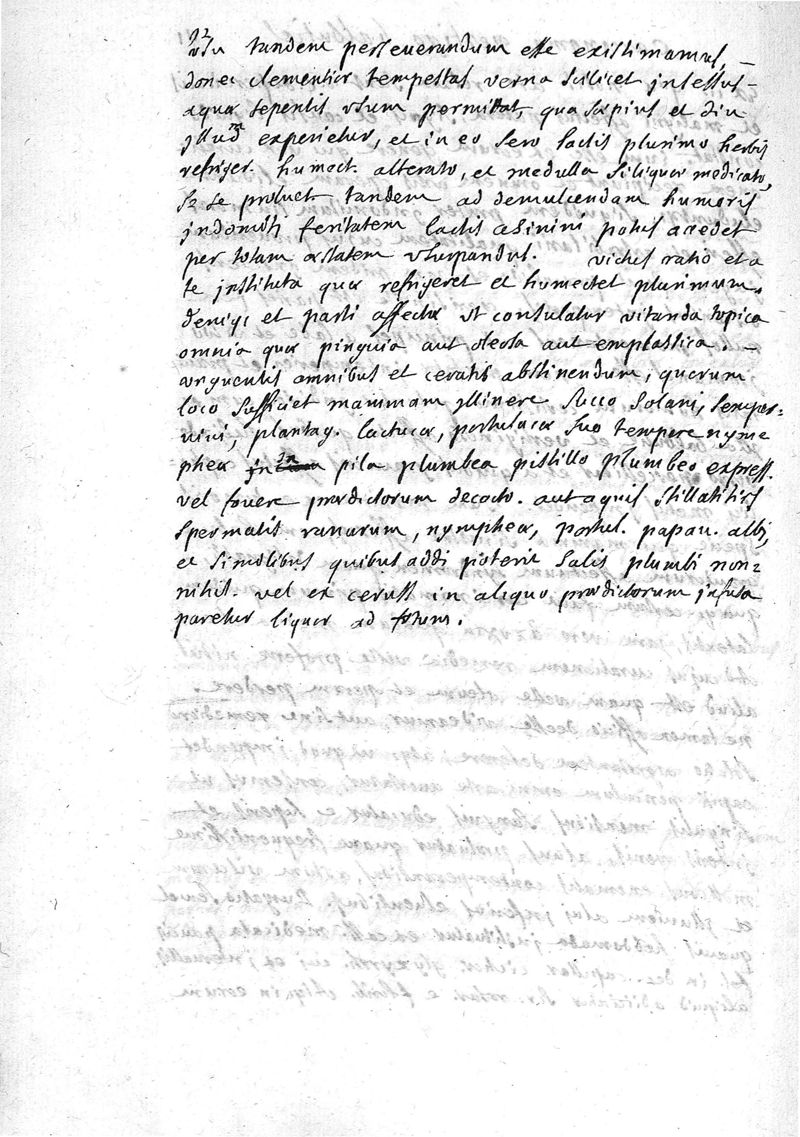 92
usu tandem perseverandum esse existimamus,
donec clementior tempestas verna scilicet intessus
aquæ tepentis usum permittat, qua sæpius et diu
illud experietur, et in eo sero lactis plurimo herbis
refriger. humect. alterato, et medulla siliquæ medicato,
se proluet tandem ad demulcendam humoris
indomiti feritatem lactis asinini potus accedet
per totam æstatem usurpandus. victus ratio et a
te instituta quæ refrigeret et humectet plurimum.
deniq; et parti affectæ ut consulatur vitanda topica
omnia quæ pinguia aut oleosa aut emplastica.
unguentis omnibus et ceratis abstinendum, quorum
loco sufficiet mammam illinere succo solani, semper-
vivi, plantag. lactucæ, portulacæ suo tempore nym
pheæ in pila plumbea pistillo plumbeo express.
vel fovere prædictorum decocto. aut aquis stillatitiis
spermatis ranarum, nympheæ, portul. papav. albi,
et similibus quibus addi poterit salis plumbi non=
nihil. vel ex ceruss in aliquo prædictorum infusa
paretur liquor ad fotum.